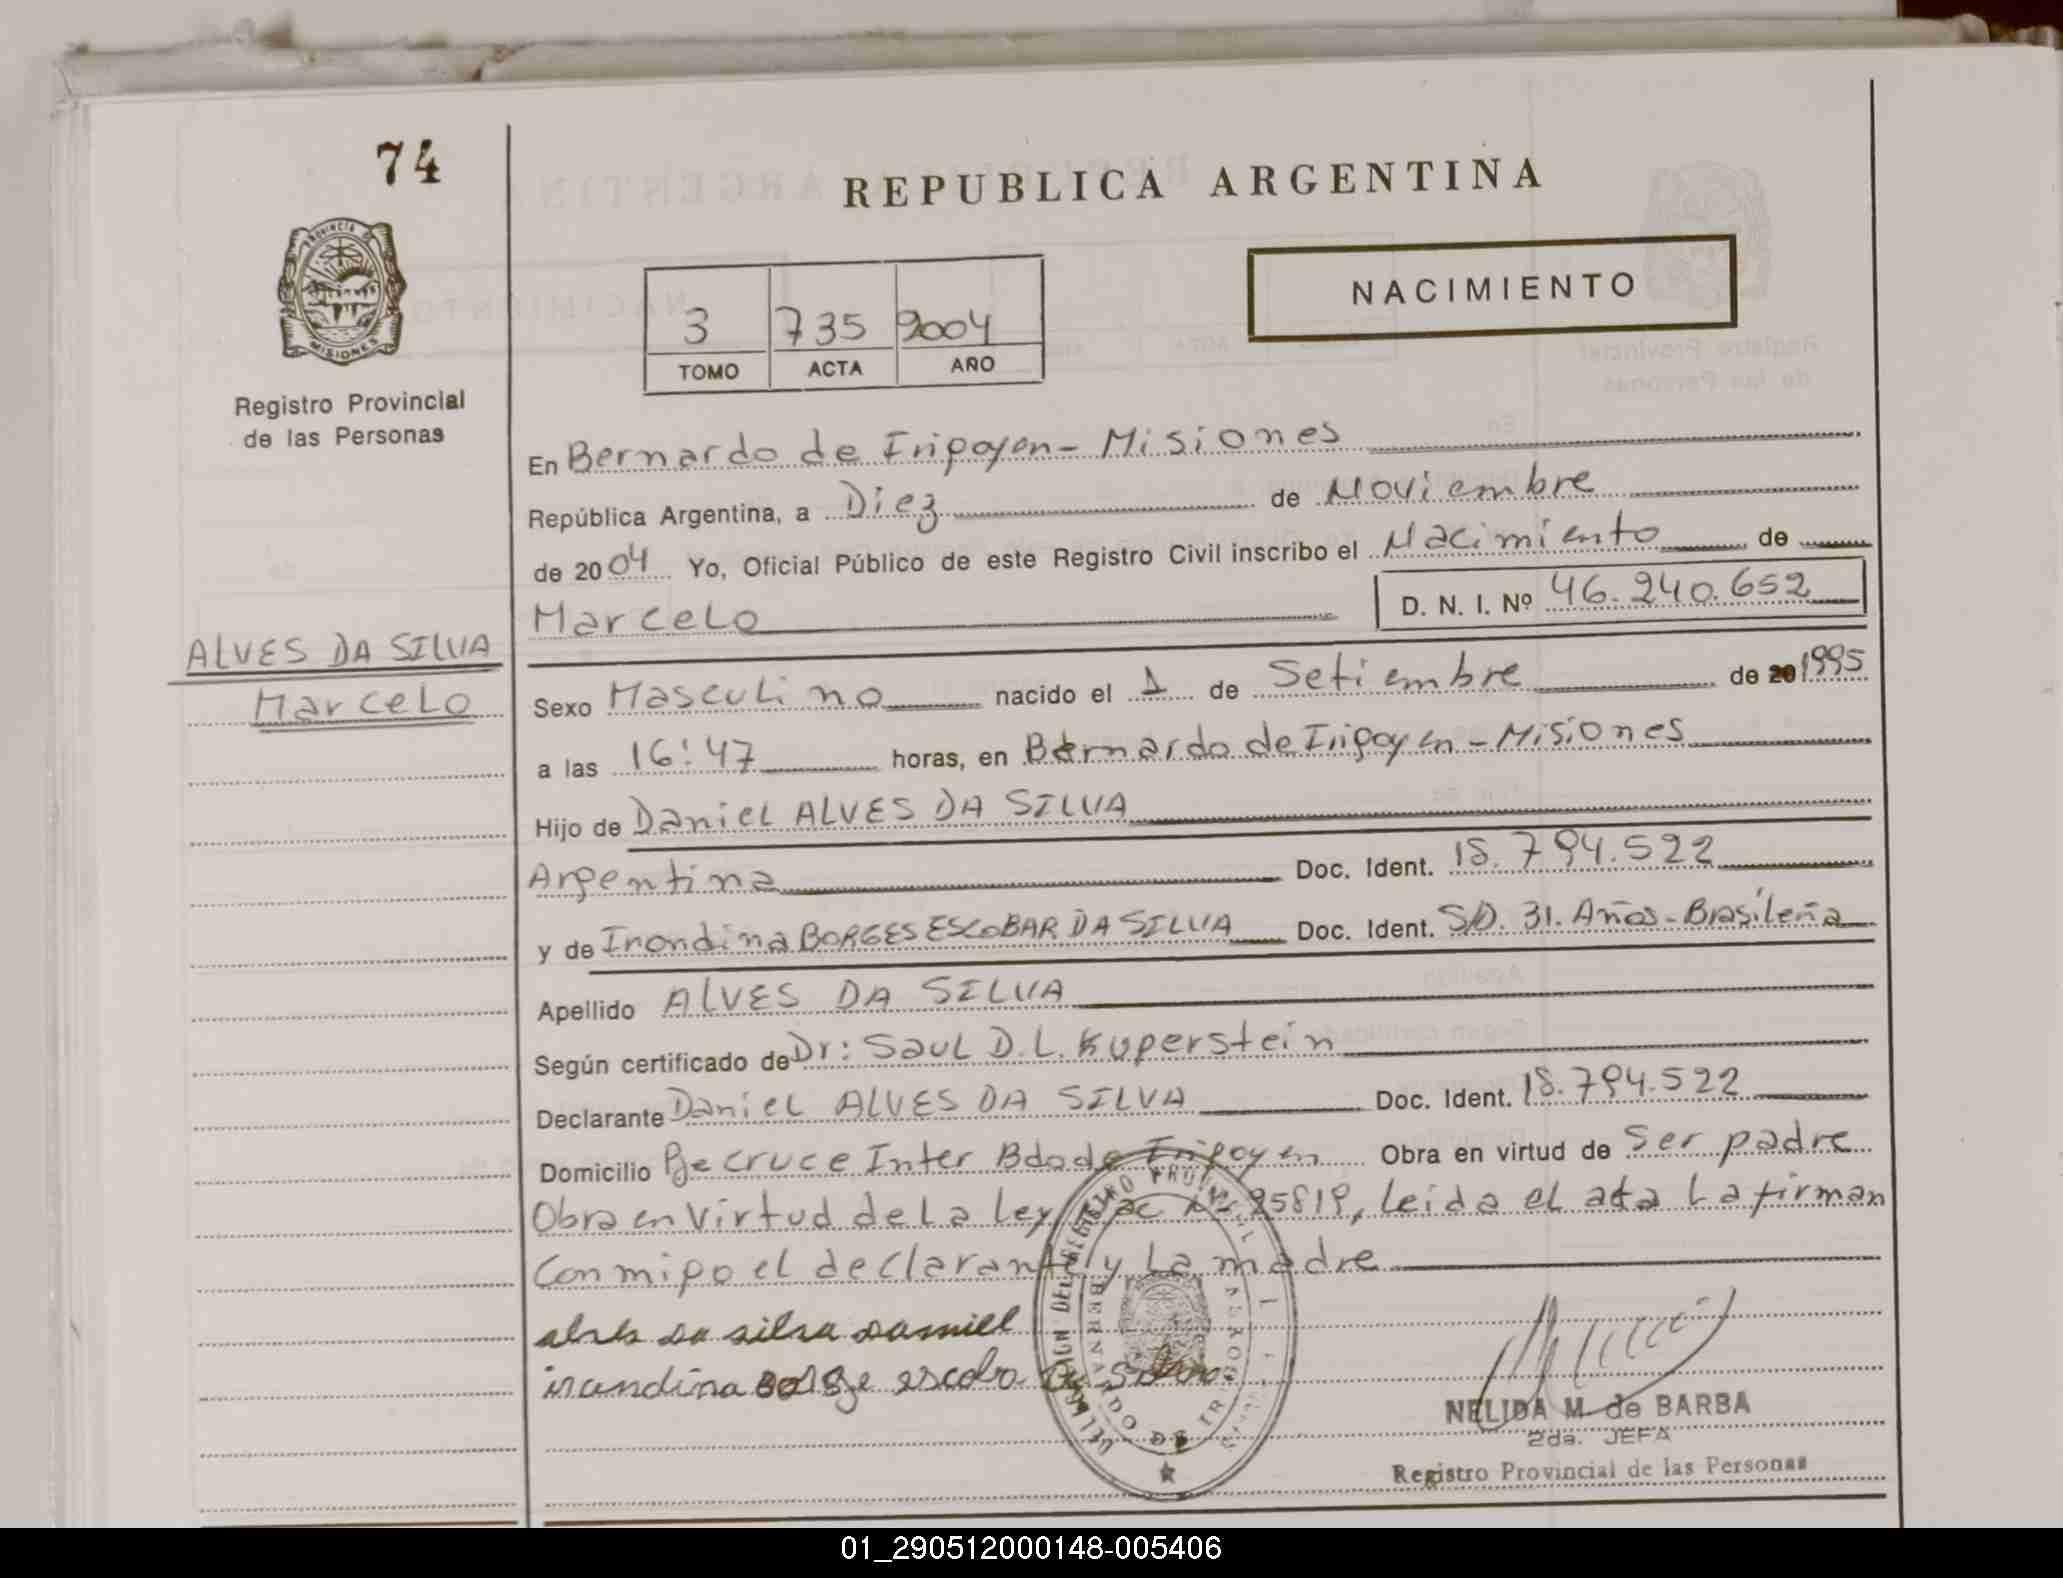 74
REPUBLICA ARGENTINA
PROVINCIA DE
MISIONES
NACIMIENTO
3 735 2004
TOMO ACTA AÑO
Registro Provincial
de las Personas
En Bernardo de Irigoyen - Misiones
República Argentina, a Diez de Noviembre
de 2004 Yo, Oficial Público de este Registro Civil inscribo el Nacimiento de
Marcelo D. N. I. Nº 46.240.652
ALVES DA SILVA
Marcelo
Sexo Masculino nacido el 1 de Setiembre de 20 1995
a las 16:47 horas, en Bernardo de Irigoyen - Misiones
Hijo de Daniel ALVES DA SILVA
Argentina Doc. Ident. 18.794.522
y de Irondina BORGES ESCOBAR DA SILVA Doc. Ident. S/D. 31. Años - Brasileña
Apellido ALVES DA SILVA
Según certificado de Dr: Saul D.L. Kuperstein
Declarante Daniel ALVES DA SILVA Doc. Ident. 18.794.522
Domicilio Pje cruce Inter Bdo de Irigoyen Obra en virtud de Ser padre
Obra en Virtud de La Ley Nac Nº 25819, Leida el acta La firman
Conmigo el declarante y La madre
da silva daniel
irandina borge escoba da
NELIDA M. de BARBA
2da. JEFA
Registro Provincial de las Personas
01_290512000148-005406